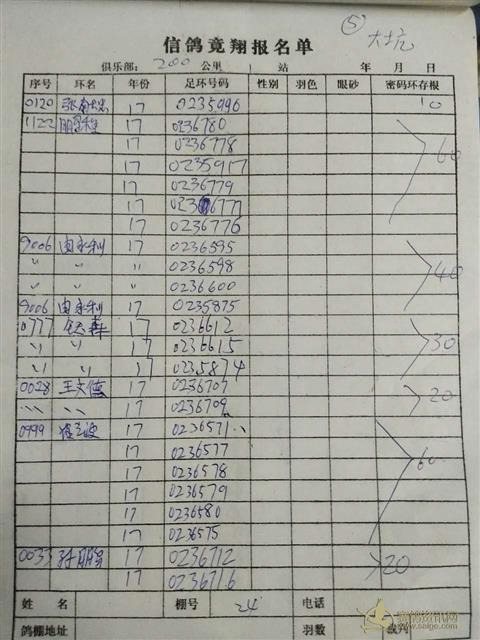 ⑤ 大坑
信鸽竞翔报名单
俱乐部: 200 公里 站 年 月 日
序号 环名 年份 足环号码 性别 羽色 眼砂 密码环存根
0120 17 0235996 10
1122 17 0236780
17 0236778 60
17 0235917
17 0236779
17
17 0236776
9006 17 0236595
〃 〃 〃 0236598 40
〃 〃 〃 0236600
9006 17 0235875
0777 17 0236612
〃 〃 17 0236615 30
〃 〃 17 0235874
0028 王文德 17 0236707 20
〃 〃 17 0236709
0999 17 0236571
17 0236577 60
17 0236578
17 0236579
17 0236580
17 0236575
0033 孙 17 0236712 20
17 0236716
姓名 棚号 24 电话
鸽棚地址 羽数 裁判
www.saige.com